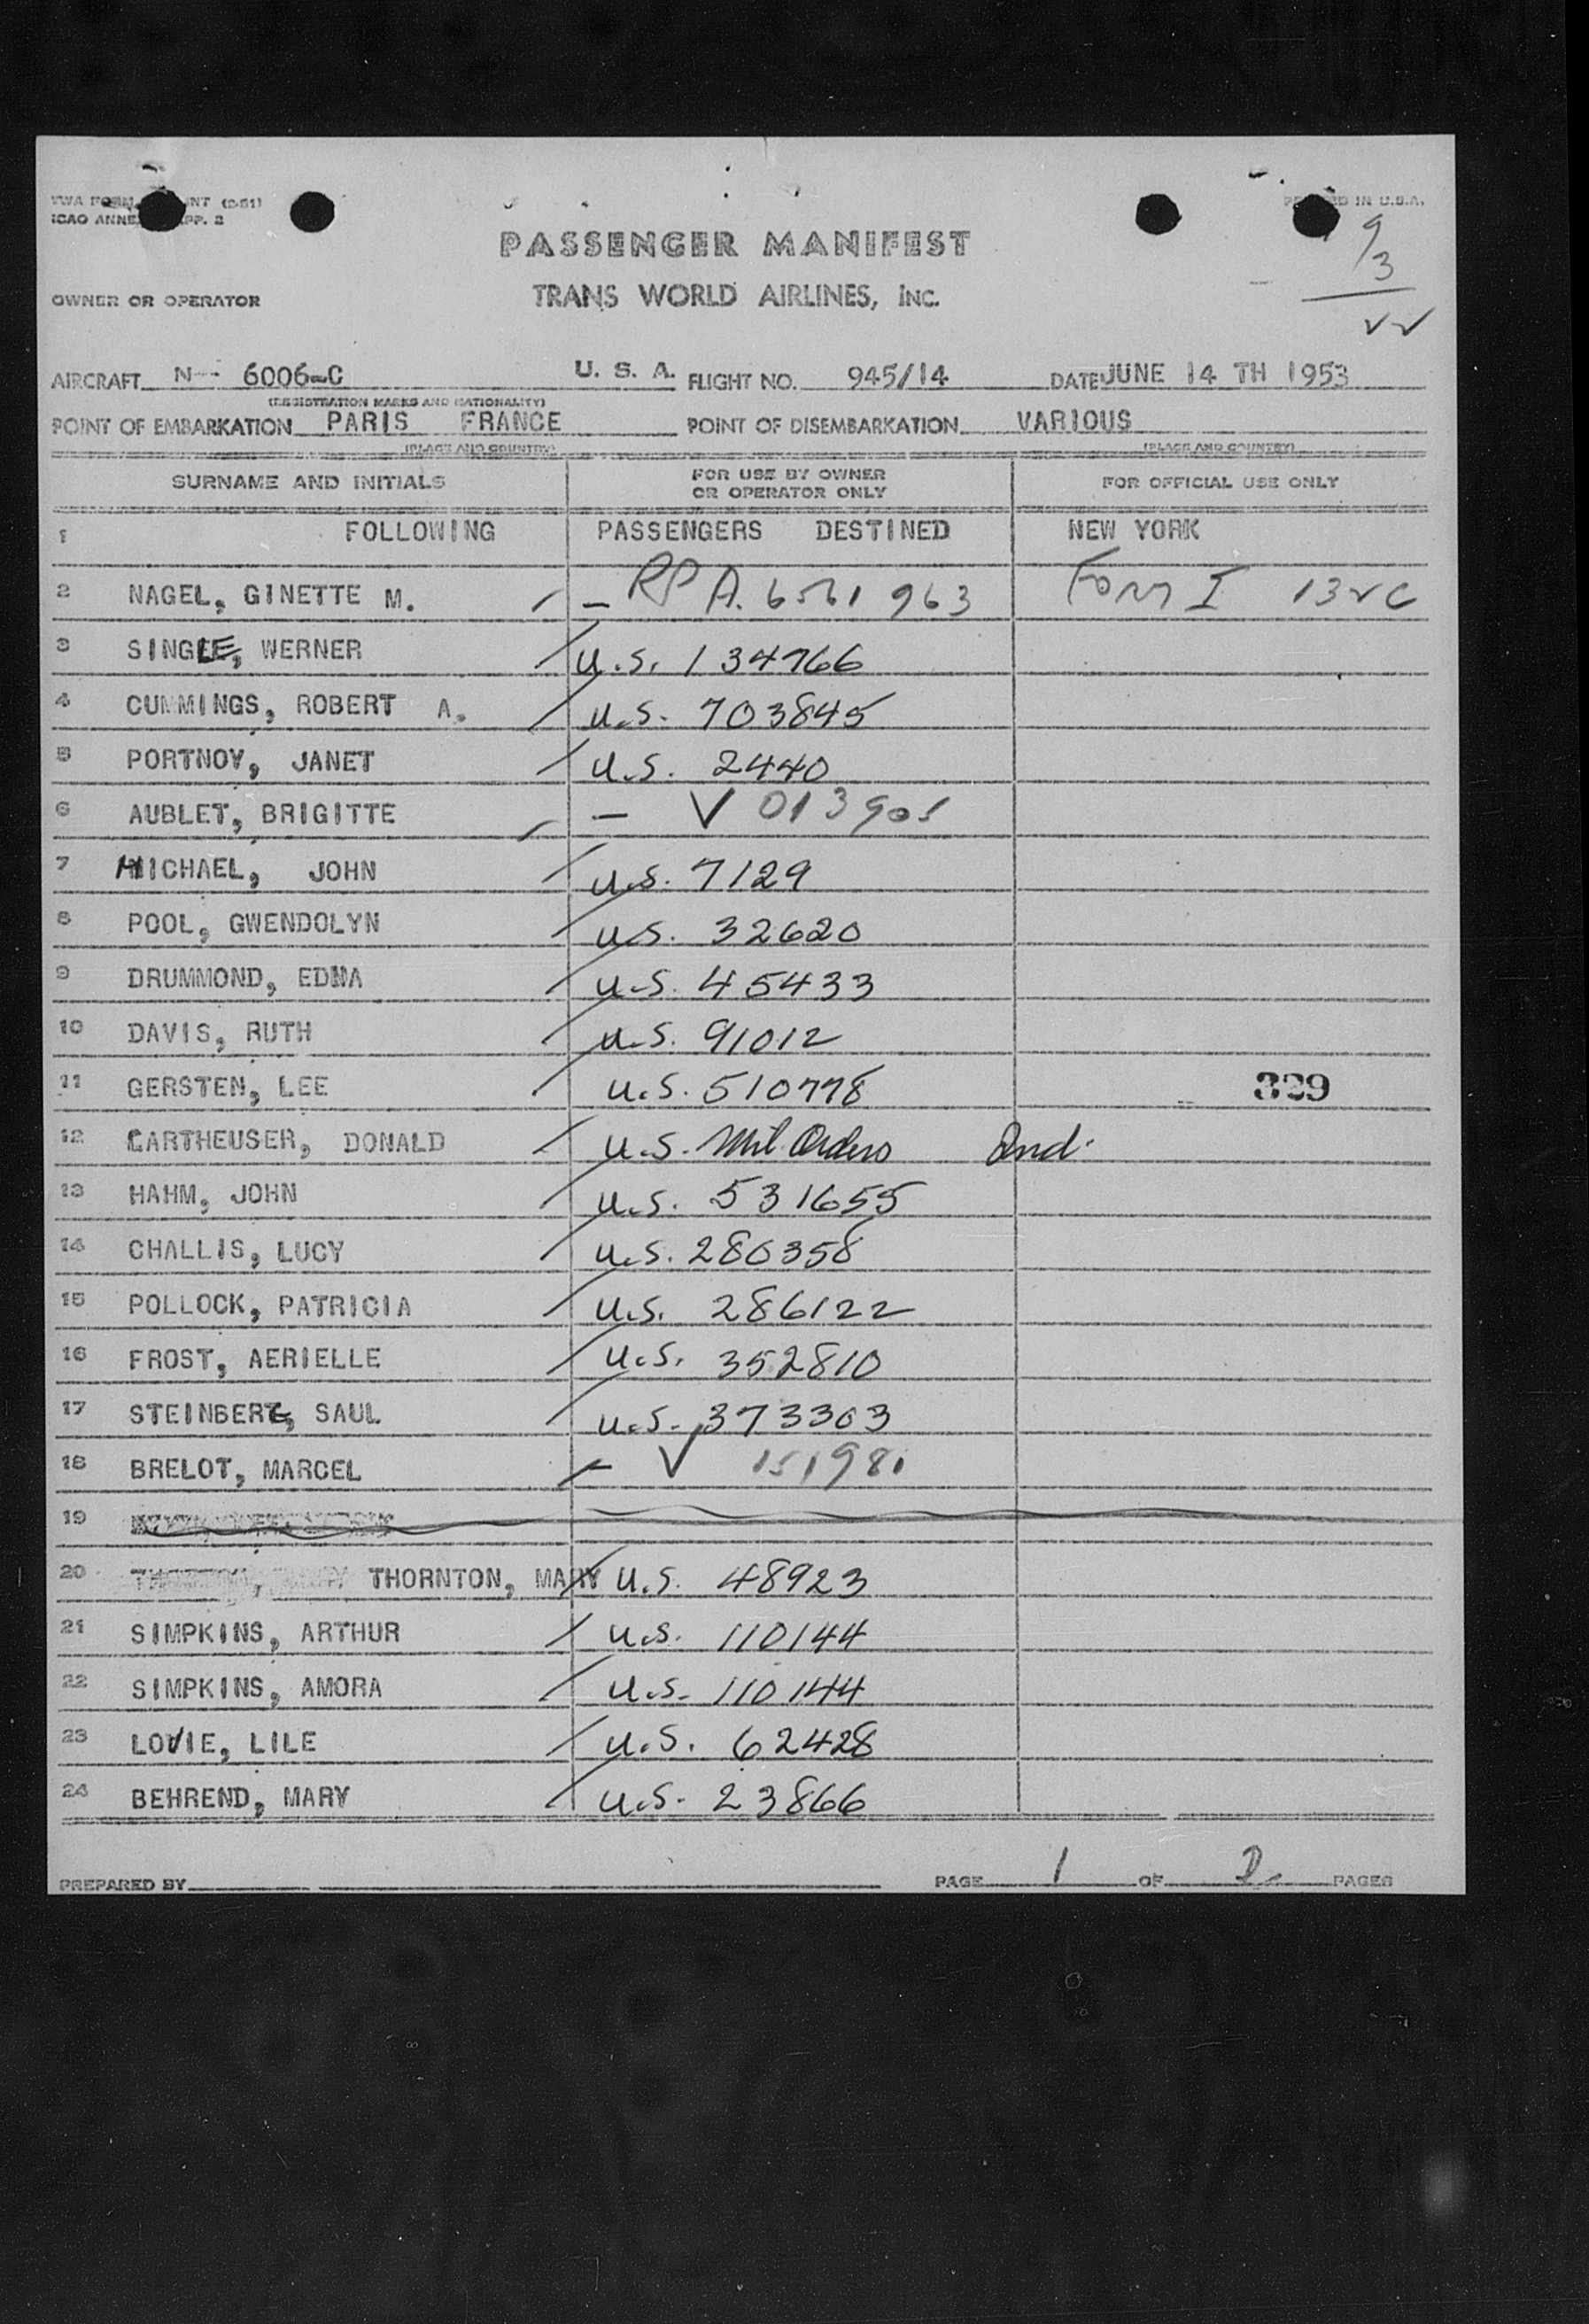 TWA FORM INT (2-51)
ICAO ANNE PP. 2
D IN U.S.A.
9/3
PASSENGER MANIFEST
OWNER OR OPERATOR TRANS WORLD AIRLINES, INC.
AIRCRAFT N-- 6006-C U. S. A. FLIGHT NO. 945/14 DATE JUNE 14 TH 1953
(REGISTRATION MARKS AND NATIONALITY)
POINT OF EMBARKATION PARIS FRANCE POINT OF DISEMBARKATION VARIOUS
(PLACE AND COUNTRY) (PLACE AND COUNTRY)
SURNAME AND INITIALS FOR USE BY OWNER OR OPERATOR ONLY FOR OFFICIAL USE ONLY
1 FOLLOWING PASSENGERS DESTINED NEW YORK
2 NAGEL, GINETTE M. - RP A. 6561963 Form I
3 SINGLE, WERNER U.S. 134766
4 CUMMINGS, ROBERT A. U.S. 703845
5 PORTNOY, JANET U.S. 2440
6 AUBLET, BRIGITTE - V 013901
7 MICHAEL, JOHN U.S. 7129
8 POOL, GWENDOLYN U.S. 32620
9 DRUMMOND, EDNA U.S. 45433
10 DAVIS, RUTH U.S. 91012
11 GERSTEN, LEE U.S. 510778 329
12 CARTHEUSER, DONALD U.S. Mil Orders Ind.
13 HAHM, JOHN U.S. 531655
14 CHALLIS, LUCY U.S. 280358
15 POLLOCK, PATRICIA U.S. 286122
16 FROST, AERIELLE U.S. 352810
17 STEINBERG, SAUL U.S. 373303
18 BRELOT, MARCEL - V 151981
19
20 THORNTON, MARY U.S. 48923
21 SIMPKINS, ARTHUR U.S. 110144
22 SIMPKINS, AMORA U.S. 110144
23 LOVIE, LILE U.S. 62428
24 BEHREND, MARY U.S. 23866
PREPARED BY PAGE 1 OF 2 PAGES